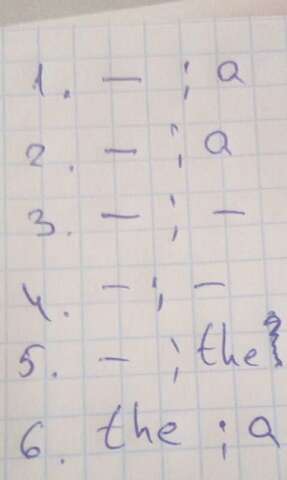 1. — ; a
2. — ; a
3. — ; —
4. — ; —
5. — ; the
6. the ; a